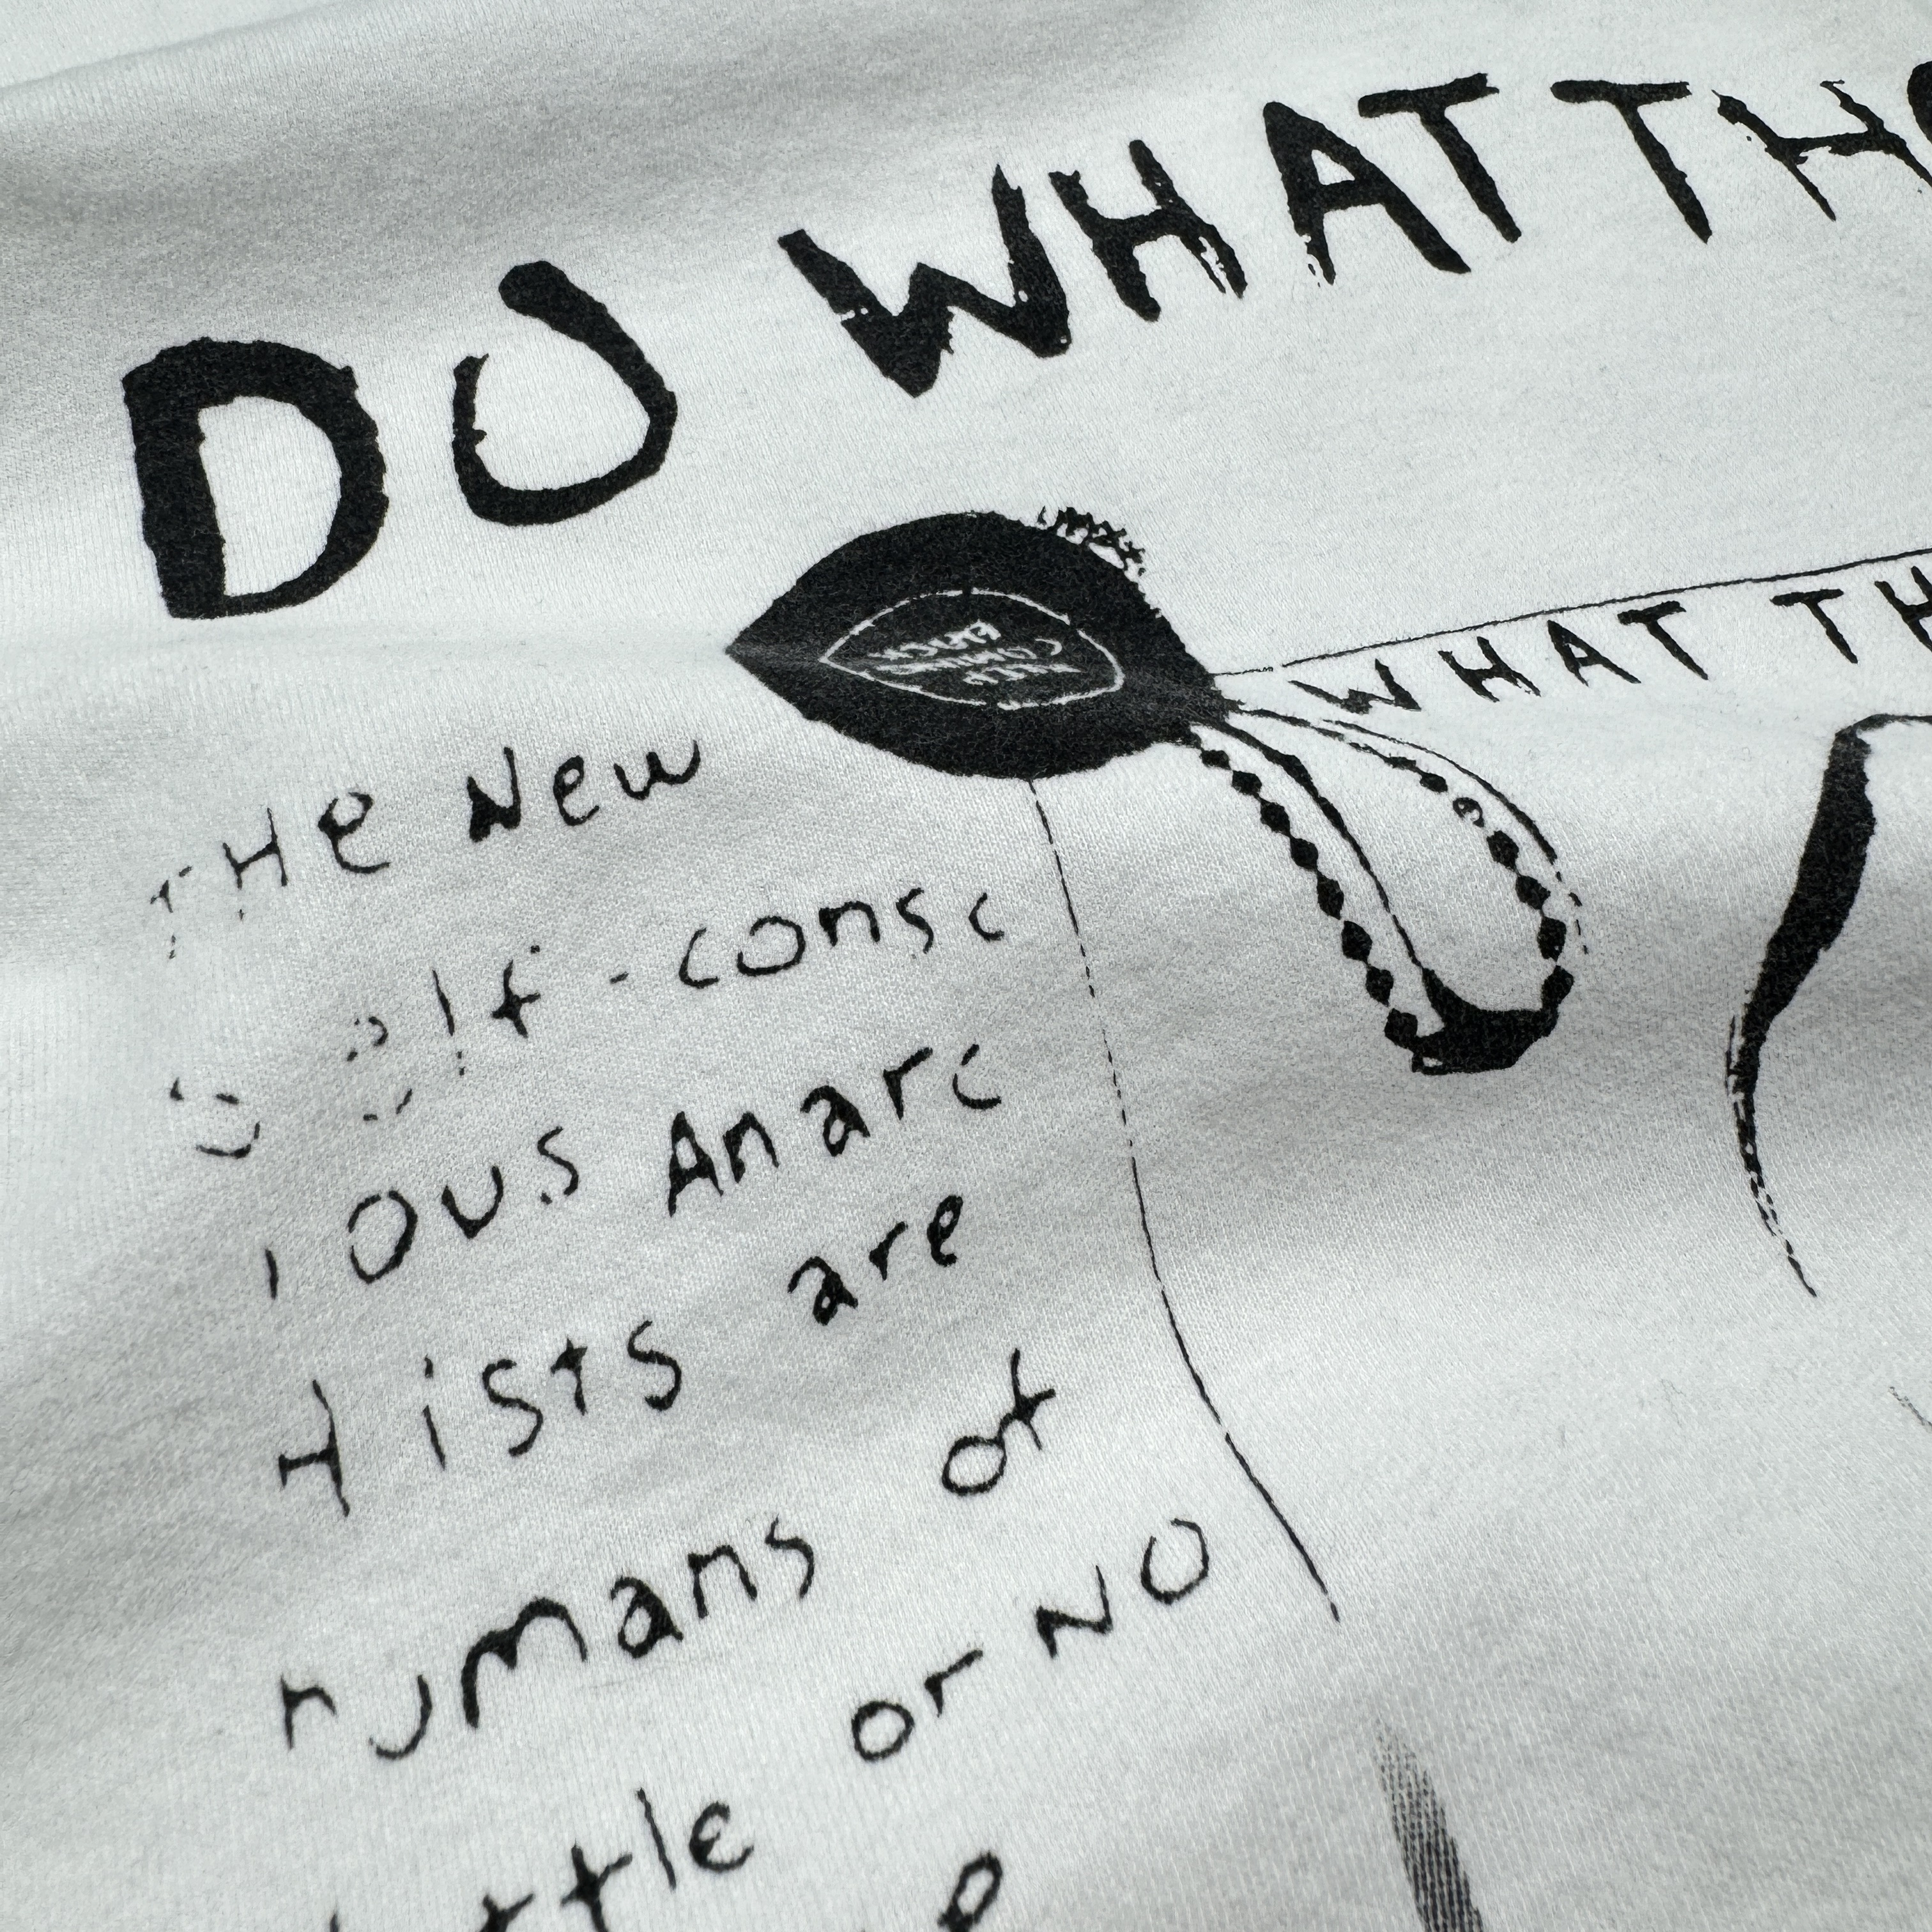 DO WHAT TH
WHAT TH
THE New
self-consc
ious Anarc
Hists are
Humans of
little or NO